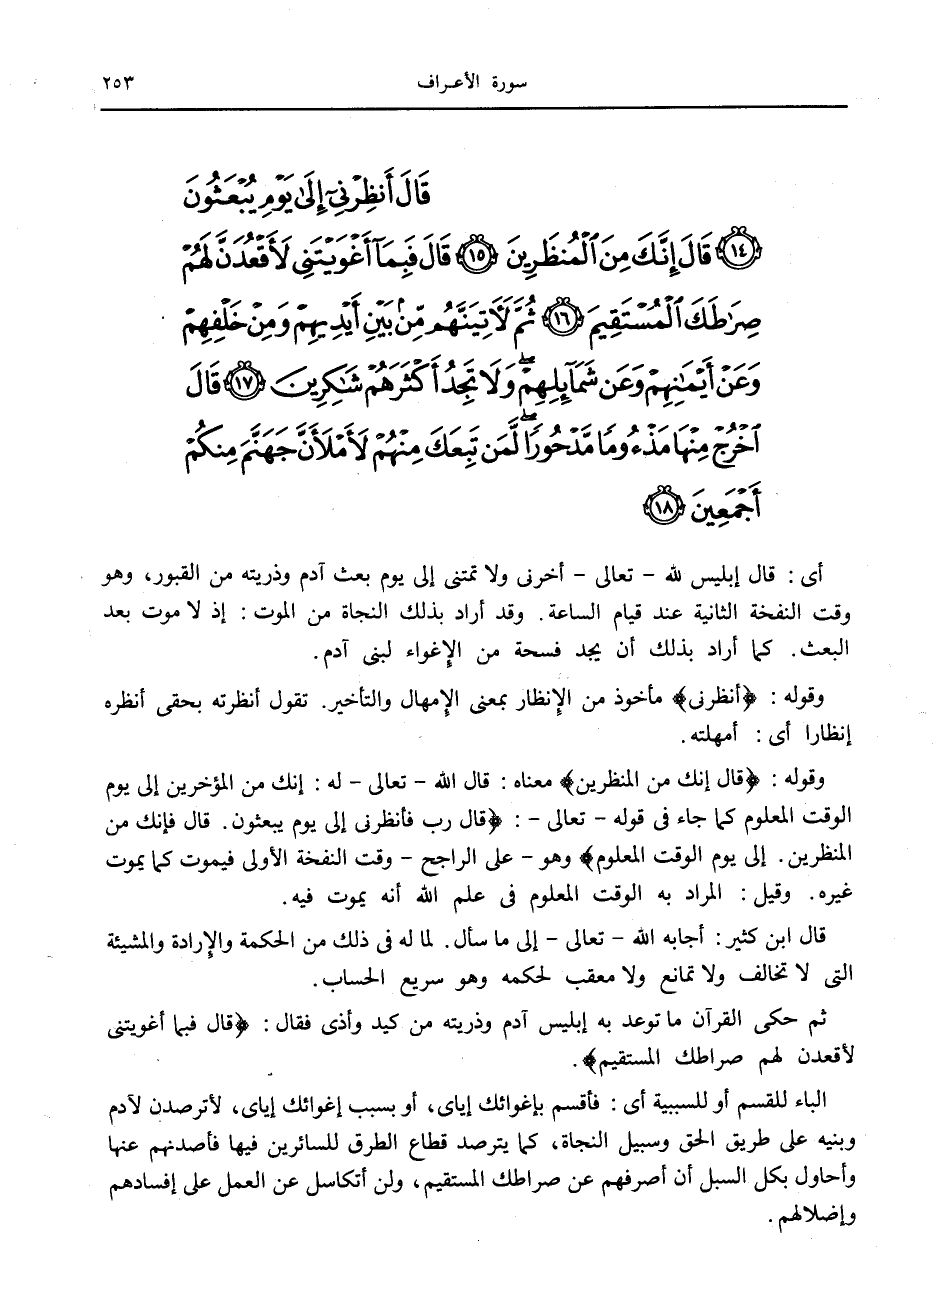 سورة الأعراف ٢٥٣
قَالَ أَنظِرْنِىٓ إِلَىٰ يَوْمِ يُبْعَثُونَ
﴿١٤﴾ قَالَ إِنَّكَ مِنَ ٱلْمُنظَرِينَ ﴿١٥﴾ قَالَ فَبِمَآ أَغْوَيْتَنِى لَأَقْعُدَنَّ لَهُمْ
صِرَٰطَكَ ٱلْمُسْتَقِيمَ ﴿١٦﴾ ثُمَّ لَـَٔاتِيَنَّهُم مِّنۢ بَيْنِ أَيْدِيهِمْ وَمِنْ خَلْفِهِمْ
وَعَنْ أَيْمَـٰنِهِمْ وَعَن شَمَآئِلِهِمْ ۖ وَلَا تَجِدُ أَكْثَرَهُمْ شَـٰكِرِينَ ﴿١٧﴾ قَالَ
ٱخْرُجْ مِنْهَا مَذْءُومًا مَّدْحُورًا ۖ لَّمَن تَبِعَكَ مِنْهُمْ لَأَمْلَأَنَّ جَهَنَّمَ مِنكُمْ
أَجْمَعِينَ ﴿١٨﴾
أى : قال إبليس لله - تعالى - أخرنى ولا تمتنى إلى يوم بعث آدم وذريته من القبور، وهو
وقت النفخة الثانية عند قيام الساعة. وقد أراد بذلك النجاة من الموت : إذ لا موت بعد
البعث. كما أراد بذلك أن يجد فسحة من الإغواء لبنى آدم.
وقوله : ﴿أنظرنى﴾ مأخوذ من الإنظار بمعنى الإمهال والتأخير. تقول أنظرته بحقى أنظره
إنظارا أى : أمهلته.
وقوله : ﴿قال إنك من المنظرين﴾ معناه : قال الله - تعالى - له : إنك من المؤخرين إلى يوم
الوقت المعلوم كما جاء فى قوله - تعالى - : ﴿قال رب فأنظرنى إلى يوم يبعثون. قال فإنك من
المنظرين. إلى يوم الوقت المعلوم﴾ وهو - على الراجح - وقت النفخة الأولى فيموت كما يموت
غيره. وقيل : المراد به الوقت المعلوم فى علم الله أنه يموت فيه.
قال ابن كثير : أجابه الله - تعالى - إلى ما سأل. لما له فى ذلك من الحكمة والإرادة والمشيئة
التى لا تخالف ولا تمانع ولا معقب لحكمه وهو سريع الحساب.
ثم حكى القرآن ما توعد به إبليس آدم وذريته من كيد وأذى فقال : ﴿قال فبما أغويتنى
لأقعدن لهم صراطك المستقيم﴾.
الباء للقسم أو للسببية أى : فأقسم بإغوائك إياى، أو بسبب إغوائك إياى، لأترصدن لآدم
وبنيه على طريق الحق وسبيل النجاة، كما يترصد قطاع الطرق للسائرين فيها فأصدنهم عنها
وأحاول بكل السبل أن أصرفهم عن صراطك المستقيم، ولن أتكاسل عن العمل على إفسادهم
وإضلالهم.